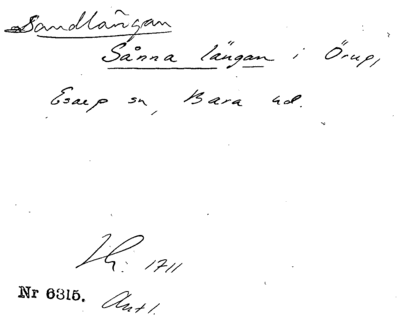 Sandlångan
Sånna längan i Örup,
Esarp sn, Bara hd.
Lh: 1711
Nr 6315. Antl.